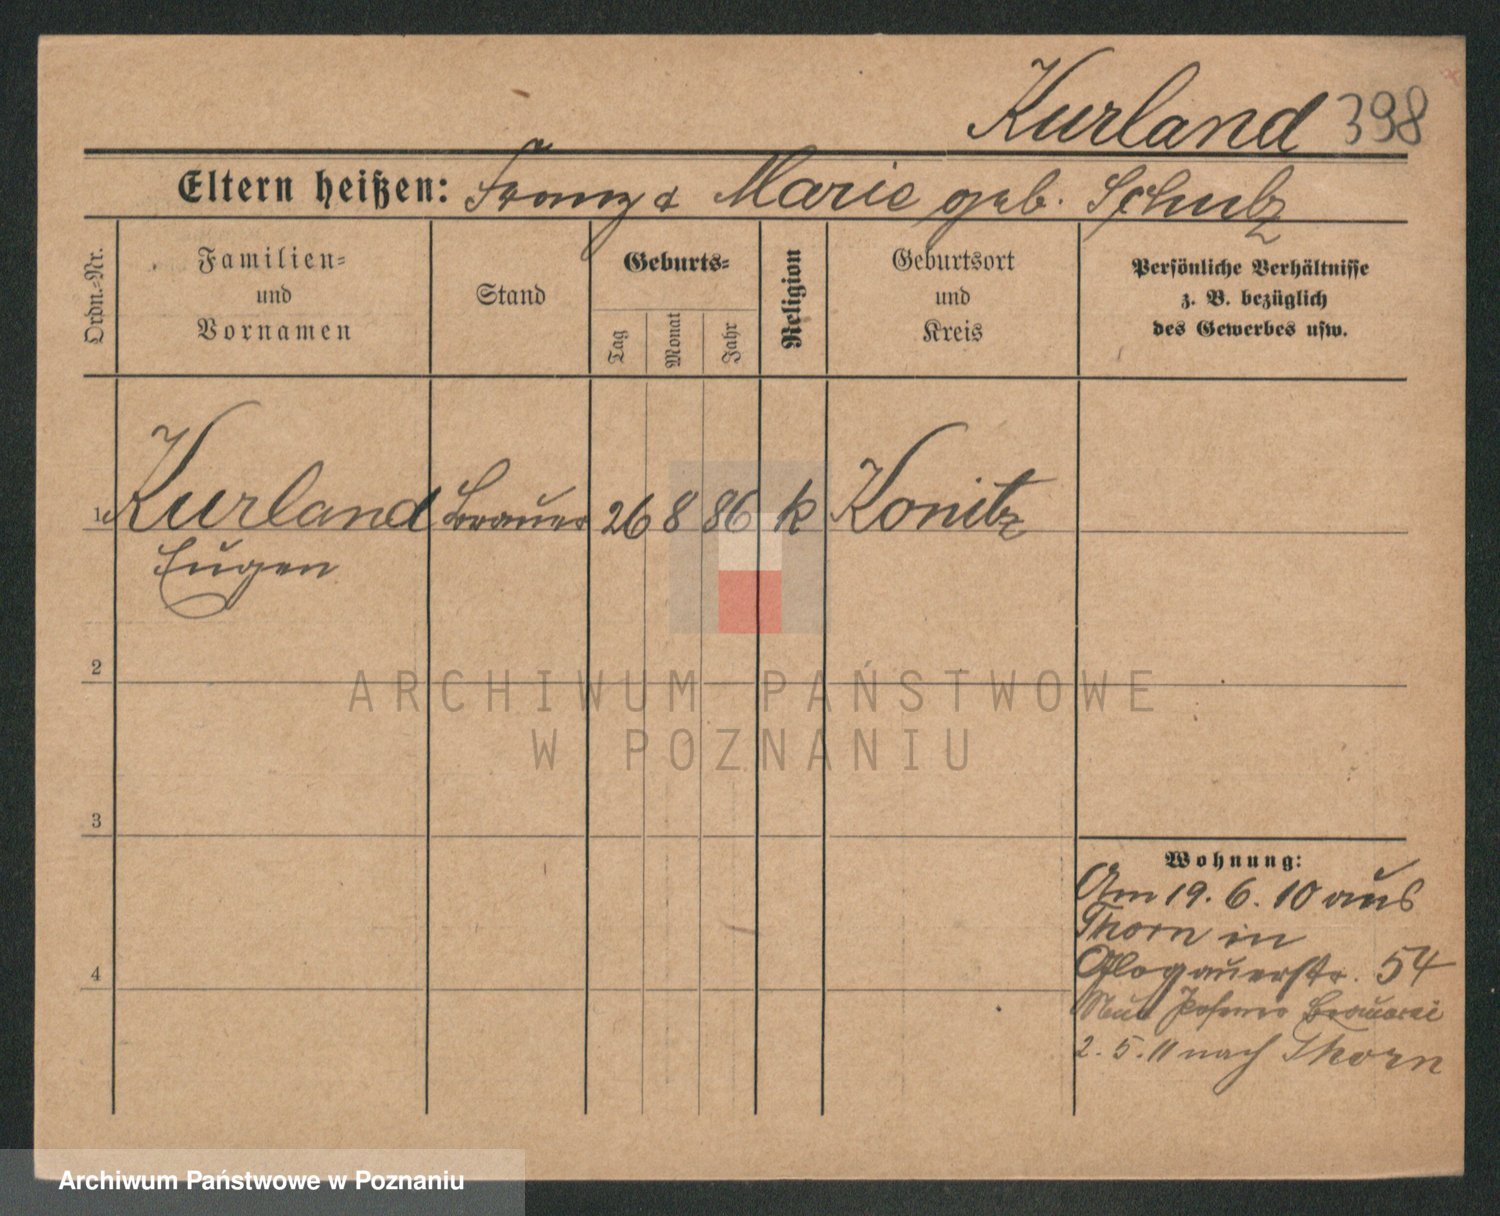 Kurland 398
Eltern heißen: Franz & Marie geb. Schulz
Ordn.-Nr.
Familien-
und
Vornamen
Stand
Geburts-
Tag
Monat
Jahr
Religion
Geburtsort
und
Kreis
Persönliche Verhältnisse
z. B. bezüglich
des Gewerbes usw.
1 Kurland Brauer 26 8 86 k Konitz
Eugen
2
ARCHIWUM PAŃSTWOWE
W POZNANIU
3
Wohnung:
Am 19. 6. 10 aus
Thorn in
Glogauerstr. 54
4
Neue Posener Brauerei
2. 5. 11 nach Thorn
Archiwum Państwowe w Poznaniu